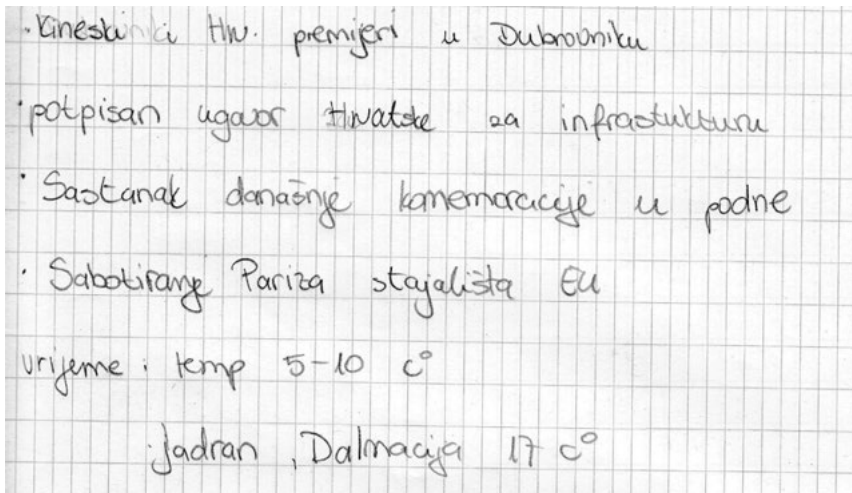 · Kineski i Hrv. premijeri u Dubrovniku
· potpisan ugovor Hrvatske za infrastukturu
· Sastanak današnje komemoracije u podne
· Sabotiranje Pariza stajališta EU
vrijeme : temp 5-10 c°
Jadran, Dalmacija 17 c°